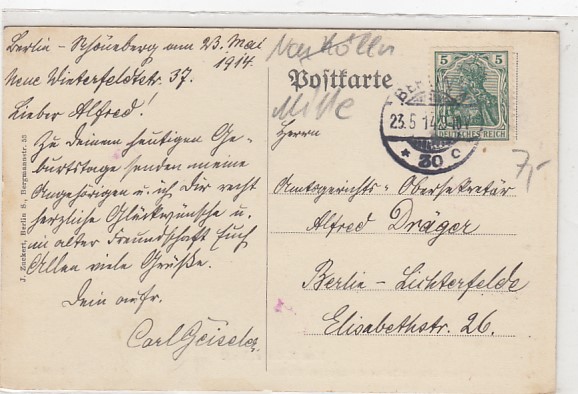 Berlin - Schöneberg am 23. Mai
1914.
Neue Winterfeldtstr. 37.
Lieber Alfred!
Zu Deinem heutigen Ge-
burtstage senden meine
Angehörigen u. ich Dir recht
herzliche Glückwünsche u.
in alter Freundschaft Euch
Allen viele Grüße.
Dein aufr.
Carl Geiseler
J. Zuckert, Berlin S., Bergmannstr. 55
Postkarte
Mitte
5 5
DEUTSCHES REICH
BERLIN
23.5 14
* 30 c
7,-
Herrn
Amtsgerichts-Obersekretär
Alfred Dräger
Berlin - Lichterfelde
Elisabethstr. 26.